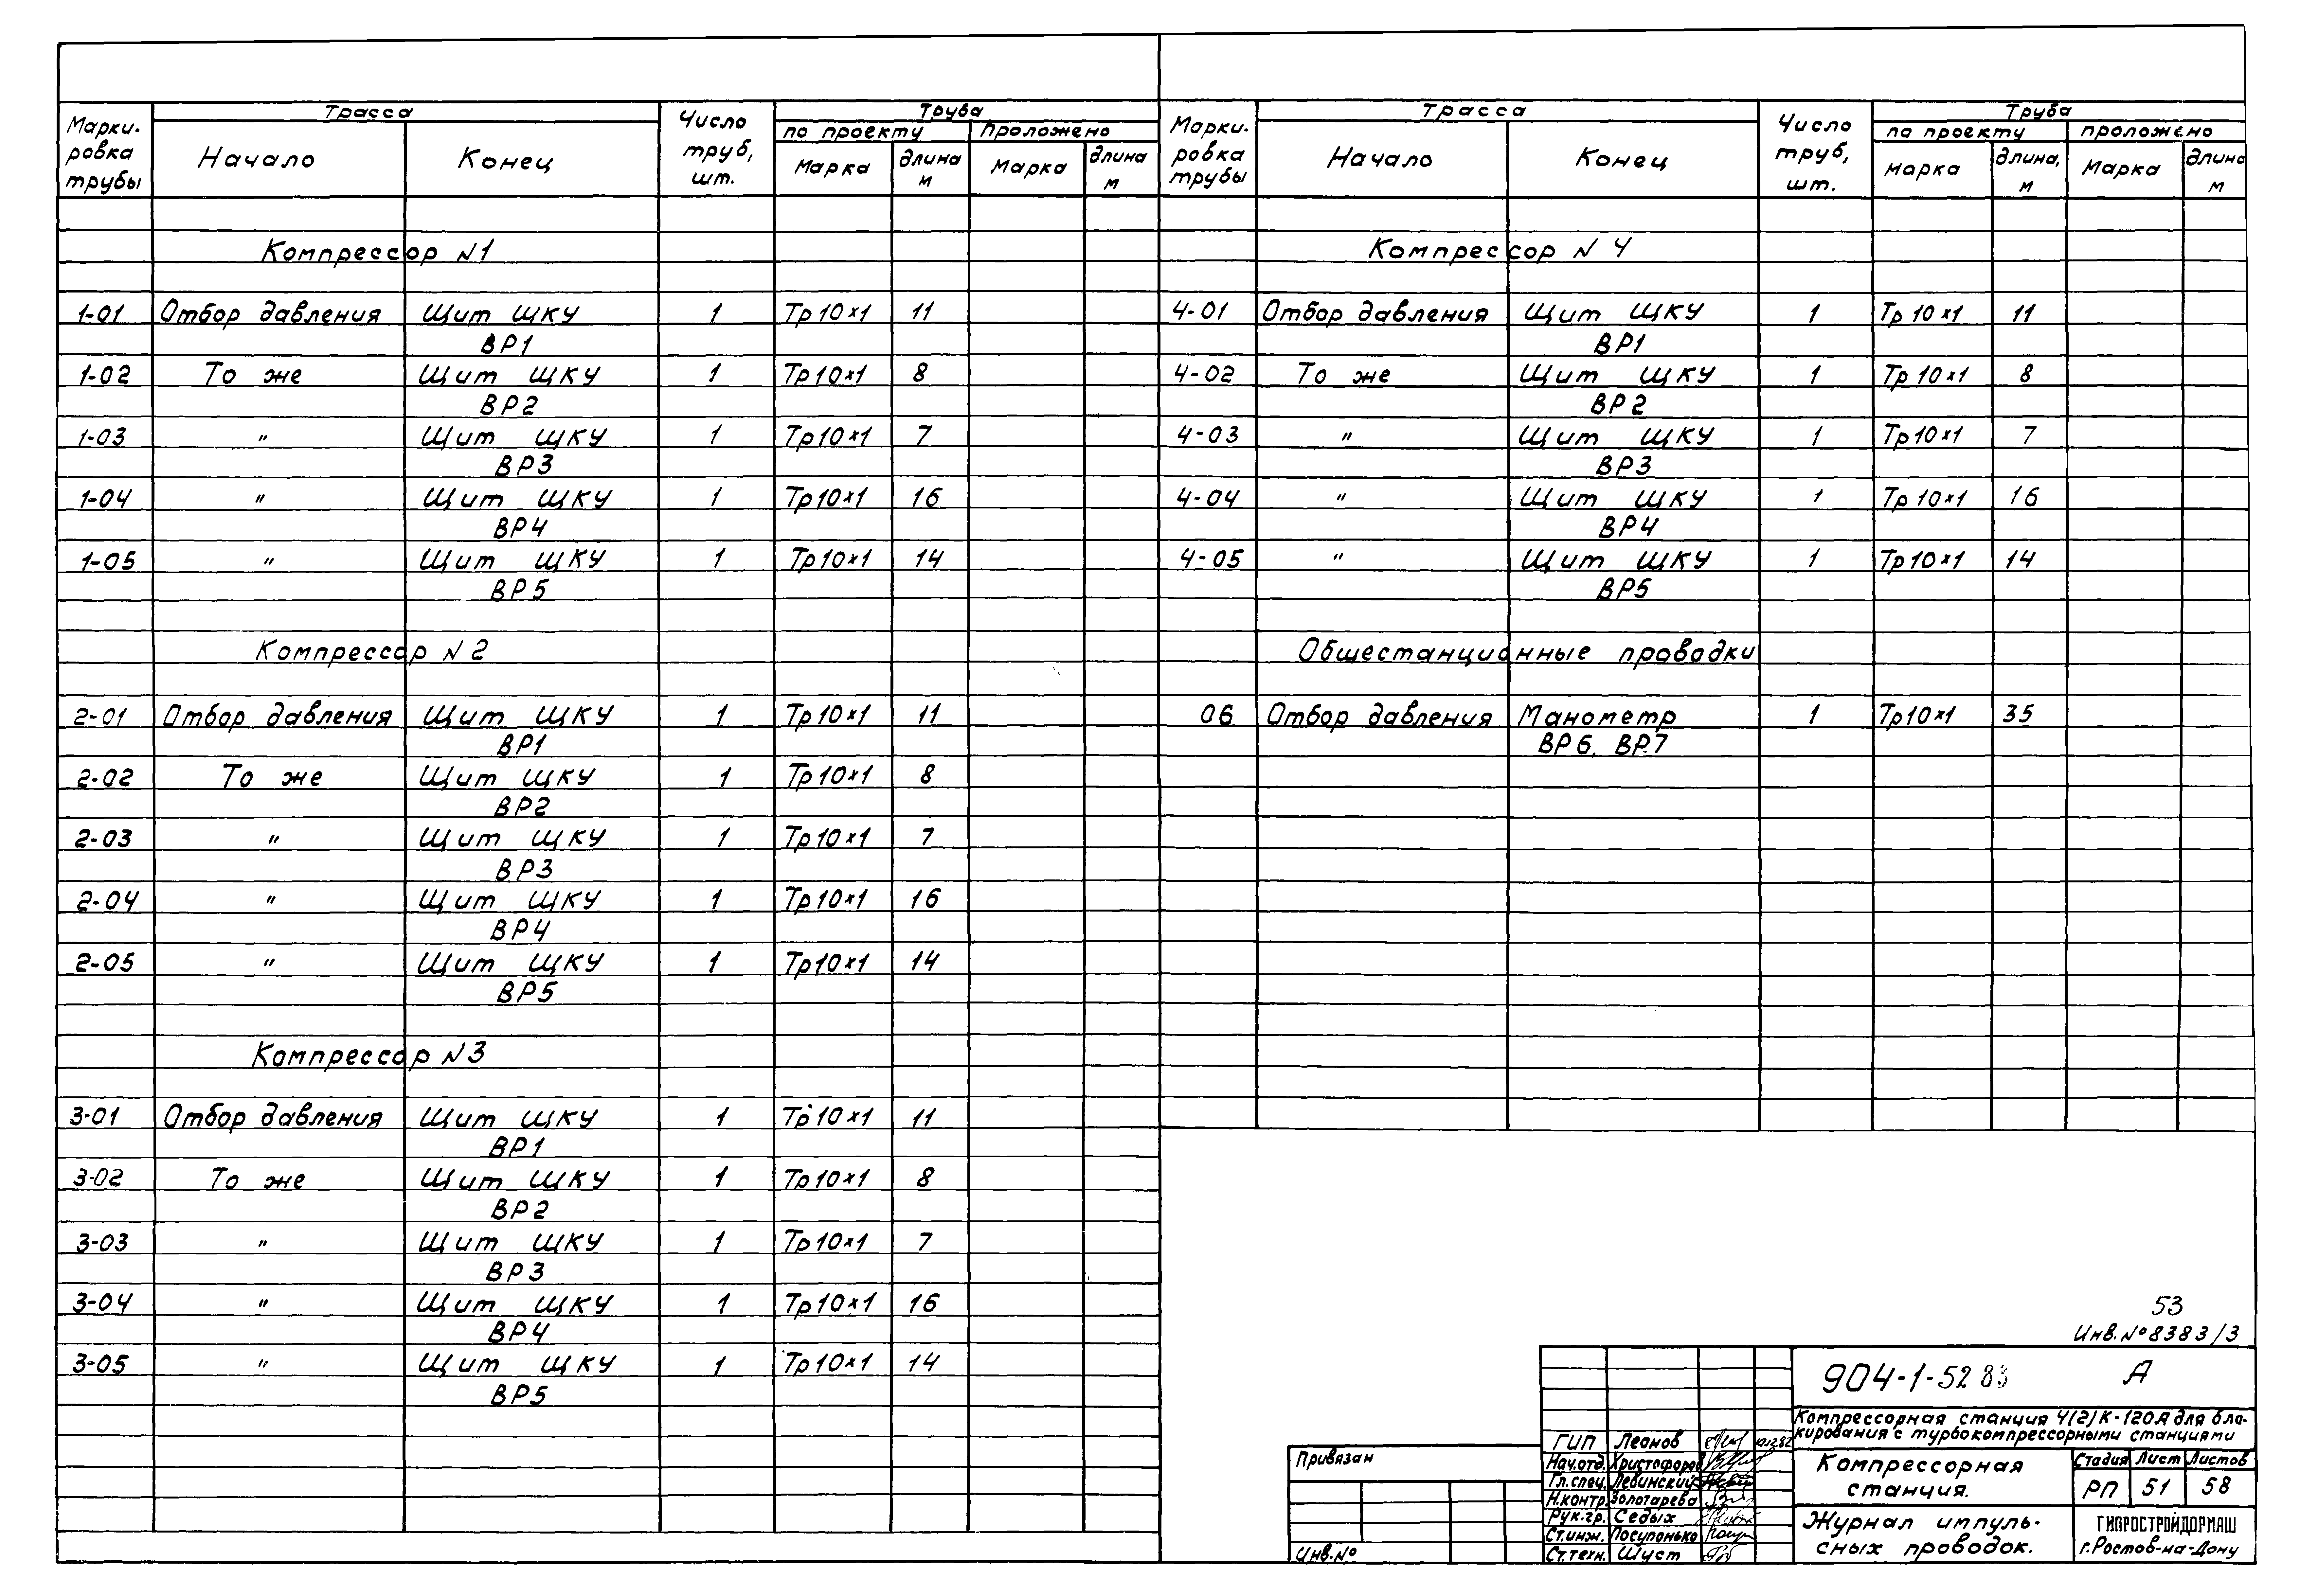 Марки-ровка трубы | Трасса | Число труб, шт. | Труба
Начало | Конец | по проекту | проложено
Марка | длина м | Марка | длина м
Компрессор N1
1-01 Отбор давления Щит ЩКУ 1 Тр10×1 11
ВР1
1-02 То же Щит ЩКУ 1 Тр10×1 8
ВР2
1-03 " Щит ЩКУ 1 Тр10×1 7
ВР3
1-04 " Щит ЩКУ 1 Тр10×1 16
ВР4
1-05 " Щит ЩКУ 1 Тр10×1 14
ВР5
Компрессор N2
2-01 Отбор давления Щит ЩКУ 1 Тр10×1 11
ВР1
2-02 То же Щит ЩКУ 1 Тр10×1 8
ВР2
2-03 " Щит ЩКУ 1 Тр10×1 7
ВР3
2-04 " Щит ЩКУ 1 Тр10×1 16
ВР4
2-05 " Щит ЩКУ 1 Тр10×1 14
ВР5
Компрессор N3
3-01 Отбор давления Щит ЩКУ 1 Тр10×1 11
ВР1
3-02 То же Щит ЩКУ 1 Тр10×1 8
ВР2
3-03 " Щит ЩКУ 1 Тр10×1 7
ВР3
3-04 " Щит ЩКУ 1 Тр10×1 16
ВР4
3-05 " Щит ЩКУ 1 Тр10×1 14
ВР5
Марки-ровка трубы | Трасса | Число труб, шт. | Труба
Начало | Конец | по проекту | проложено
марка | длина, м | Марка | длина м
Компрессор N4
4-01 Отбор давления Щит ЩКУ 1 Тр10×1 11
ВР1
4-02 То же Щит ЩКУ 1 Тр10×1 8
ВР2
4-03 " Щит ЩКУ 1 Тр10×1 7
ВР3
4-04 " Щит ЩКУ 1 Тр10×1 16
ВР4
4-05 " Щит ЩКУ 1 Тр10×1 14
ВР5
Общестанционные проводки
06 Отбор давления Манометр 1 Тр10×1 35
ВР6, ВР7
53
Инв.№8383/3
904-1-52 83 А
Компрессорная станция 4(2)К-120А для бло-
кирования с турбокомпрессорными станциями
Компрессорная
станция.
Стадия Лист Листов
РП 51 58
Журнал импуль-
сных проводок.
ГИПРОСТРОЙДОРМАШ
г.Ростов-на-Дону
ГИП Леонов
Нач.отд. Христофоров
Гл.спец. Левинский
Н.контр. Золотарева
Рук.гр. Седых
Ст.инж. Посупонько
Ст.техн. Шуст
Привязан
Инв.№